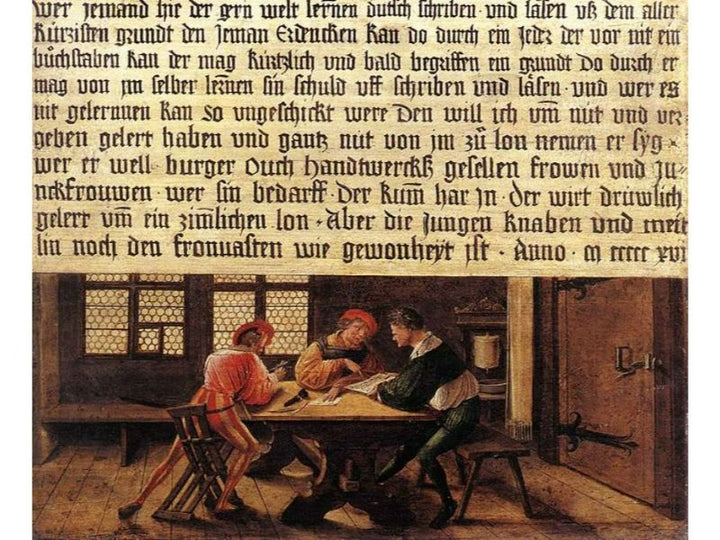 wer jemand hie der gern welt lernen dutsch schriben vnd läsen vß dem aller
kürzisten grundt den jeman Erdencken kan do durch ein jeder der vor nit ein
büchstaben kan der mag kürtzlich vnd bald begriffen ein grundt do durch er
mag von jm selber lernen sin schuld vff schriben vnd läsen · vnd wer es
nit gelernnen kan so vngeschickt were Den will ich vm̄ nüt vnd ver:
geben gelert haben vnd gantz nüt von jm zů lon nemen er syg ×
wer er well · burger Ouch handtwerckß gesellen frowen vnd ju=
nckfrouwen · wer sin bedarff · Der kum̄ har jn · der wirt drüwlich
gelert vm̄ ein zim̄lichen lon · Aber die jungen knaben vnd meit
lin noch den fronuasten wie gewonheyt ist · Anno · m ccccc xvi